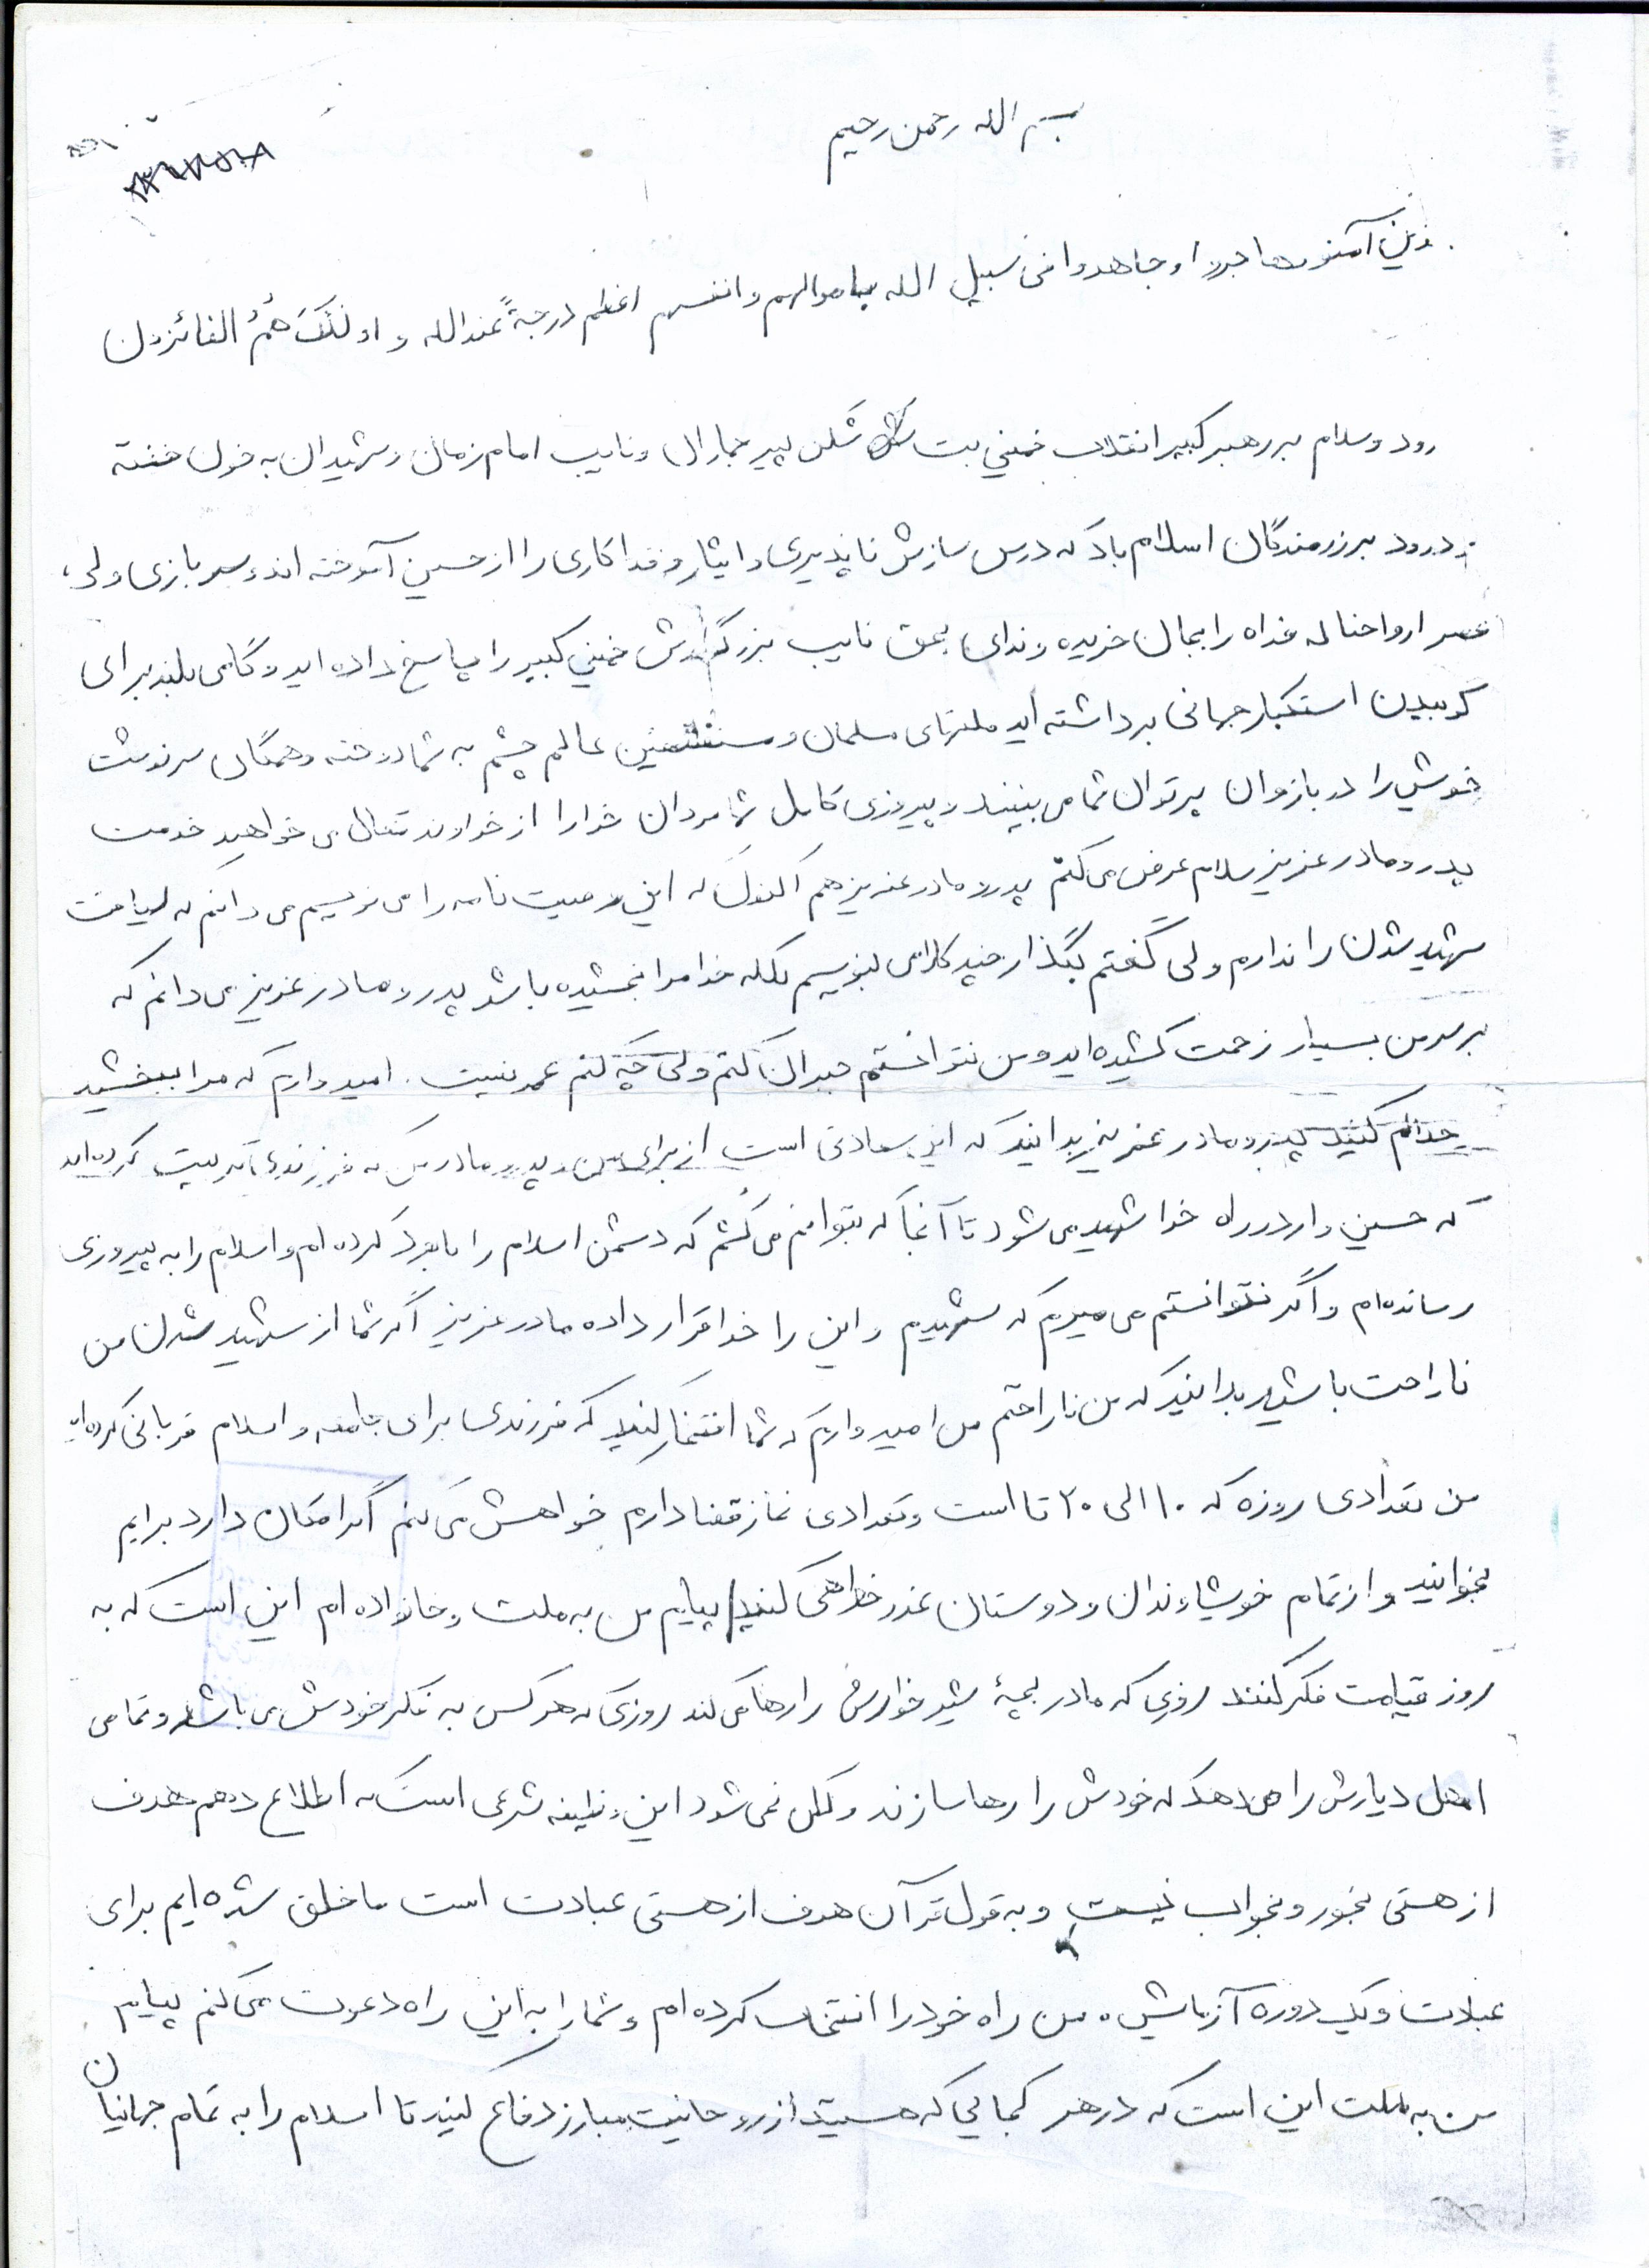 بسم الله رحمن رحیم
ذین آمنو هاجروا و جاهدوا فی سبیل الله باموالهم و انفسهم اعظم درجةً عندالله و اولئکَ همُ الفائزون
رود و سلام بر رهبر کبیر انقلاب خمینی بت شکن پیر جماران و نایب امام زمان و شهیدان به خون خفته
درود بر رزمندگان اسلام باد که درس سازش ناپذیری و ایثار و فداکاری را از حسین آموخته اند و سربازی ولی
عصر ارواحنا له فداه را بجان خریده و ندای بحق نایب بزرگوارش خمینی کبیر را پاسخ داده اید و گامی بلند برای
کوبیدن استکبار جهانی برداشته اید ملتهای مسلمان و عالم چشم به شما دوخته و همگان سرنوشت
خویش را در بازوان پرتوان شما می بینند و پیروزی کامل شما مردان خدا را از خداوند تعال می خواهید خدمت
پدر و مادر عزیز سلام عرض می کنم پدر و مادر عزیز هم اکنون که این وصیت نامه را می نویسم می دانم که لیاقت
شهید شدن را ندارم ولی گفتم بگذار چند کلامی بنویسم بلکه خدا مرا بخشیده باشد پدر و مادر عزیز می دانم که
بر سر من بسیار زحمت کشیده اید و من نتوانستم جبران کنم ولی چه کنم عمر نیست . امیدوارم که مرا ببخشید
حلالم کنید پدر و مادر عزیز بدانید که این سعادتی است از برای من و پدر و مادر من که فرزندی تربیت کرده اید
که حسین وار در راه خدا شهید می شود تا آنجا که بتوانم می کشم که دشمن اسلام را نابود کرده ام و اسلام را به پیروزی
رسانده ام و اگر نتوانستم می میرم که شهیدم و این را خدا قرار داده مادر عزیز اگر شما از شهید شدن من
ناراحت باشید بدانید که من ناراحتم من امیدوارم که شما افتخار کنید که فرزندی برای جامعه و اسلام قربانی کرده اید
من تعدادی روزه که ۱۰ الی ۲۰ تا است و تعدادی نماز قضا دارم خواهش می کنم اگر امکان دارد برایم
بخوانید و از تمام خویشاوندان و دوستان عذر خواهی کنید پیام من به ملت و خانواده ام این است که به
روز قیامت فکر کنند روزی که مادر بچهٔ شیر خوارش را رها می کند روزی که هر کس به فکر خودش می باشد و تمامی
اهل دیارش را می دهد که خودش را رها سازند و لکن نمی شود این وظیفه شرعی است که اطلاع دهم هدف
از هستی بخور و بخواب نیست و به قول قرآن هدف از هستی عبادت است ما خلق شده ایم برای
عبادت و یک دوره آزمایش ه من راه خود را انتخاب کرده ام و شما را به این راه دعوت می کنم پیام
من به ملت این است که در هر کجایی که هستید از روحانیت مبارز دفاع کنید تا اسلام را به تمام جهانیان